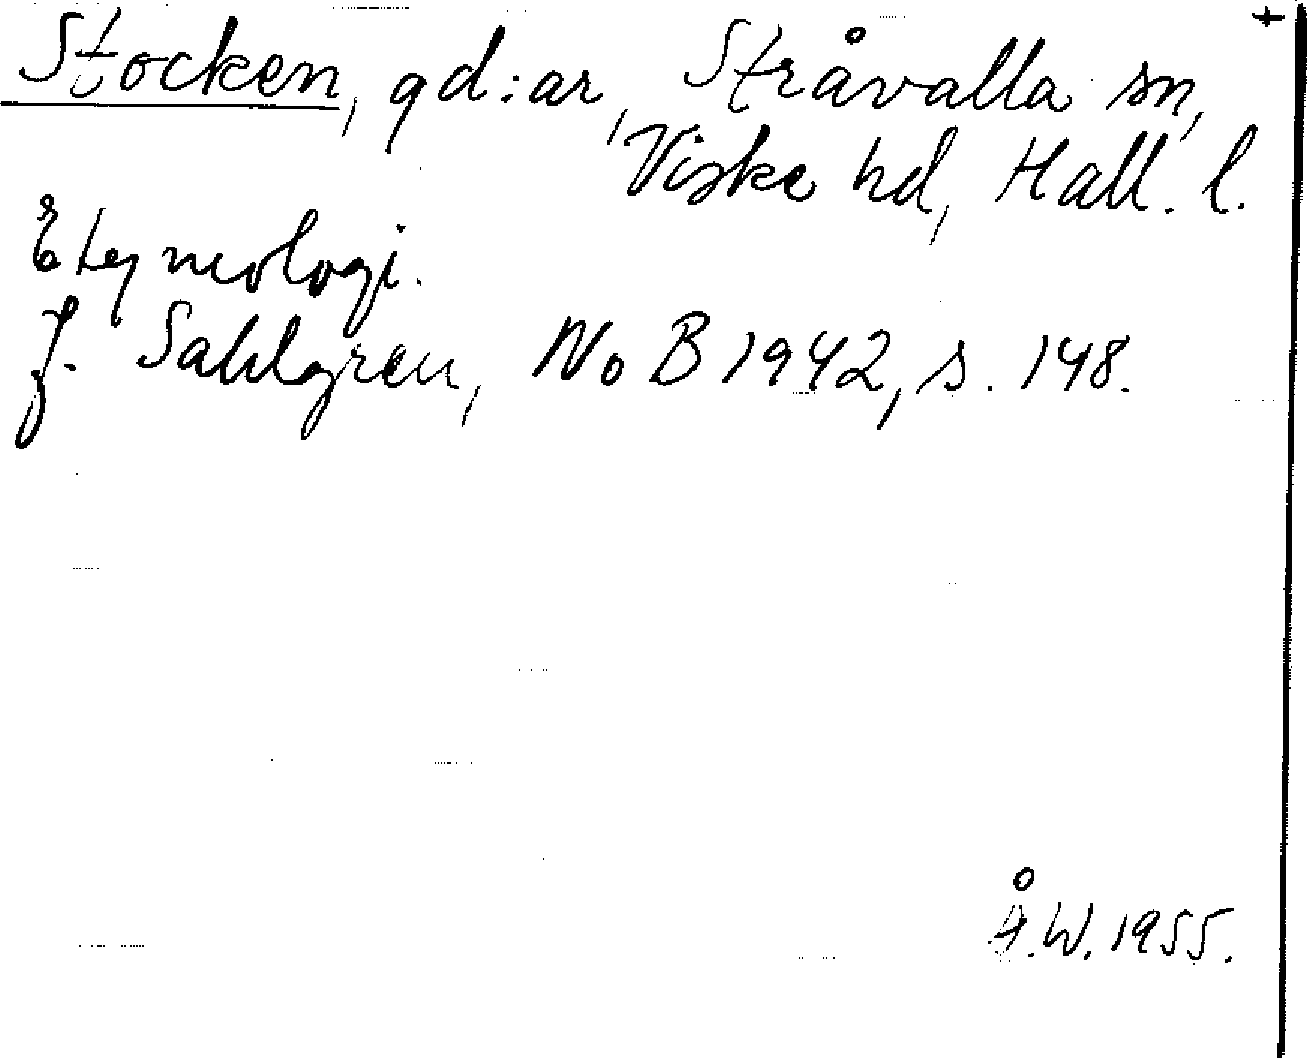 Stocken, gd:ar, Stråvalla sn,
Viske hd, Hall. l.
Etymologi.
J. Sahlgren, NoB 1942, s. 148.
Å.W. 1955.